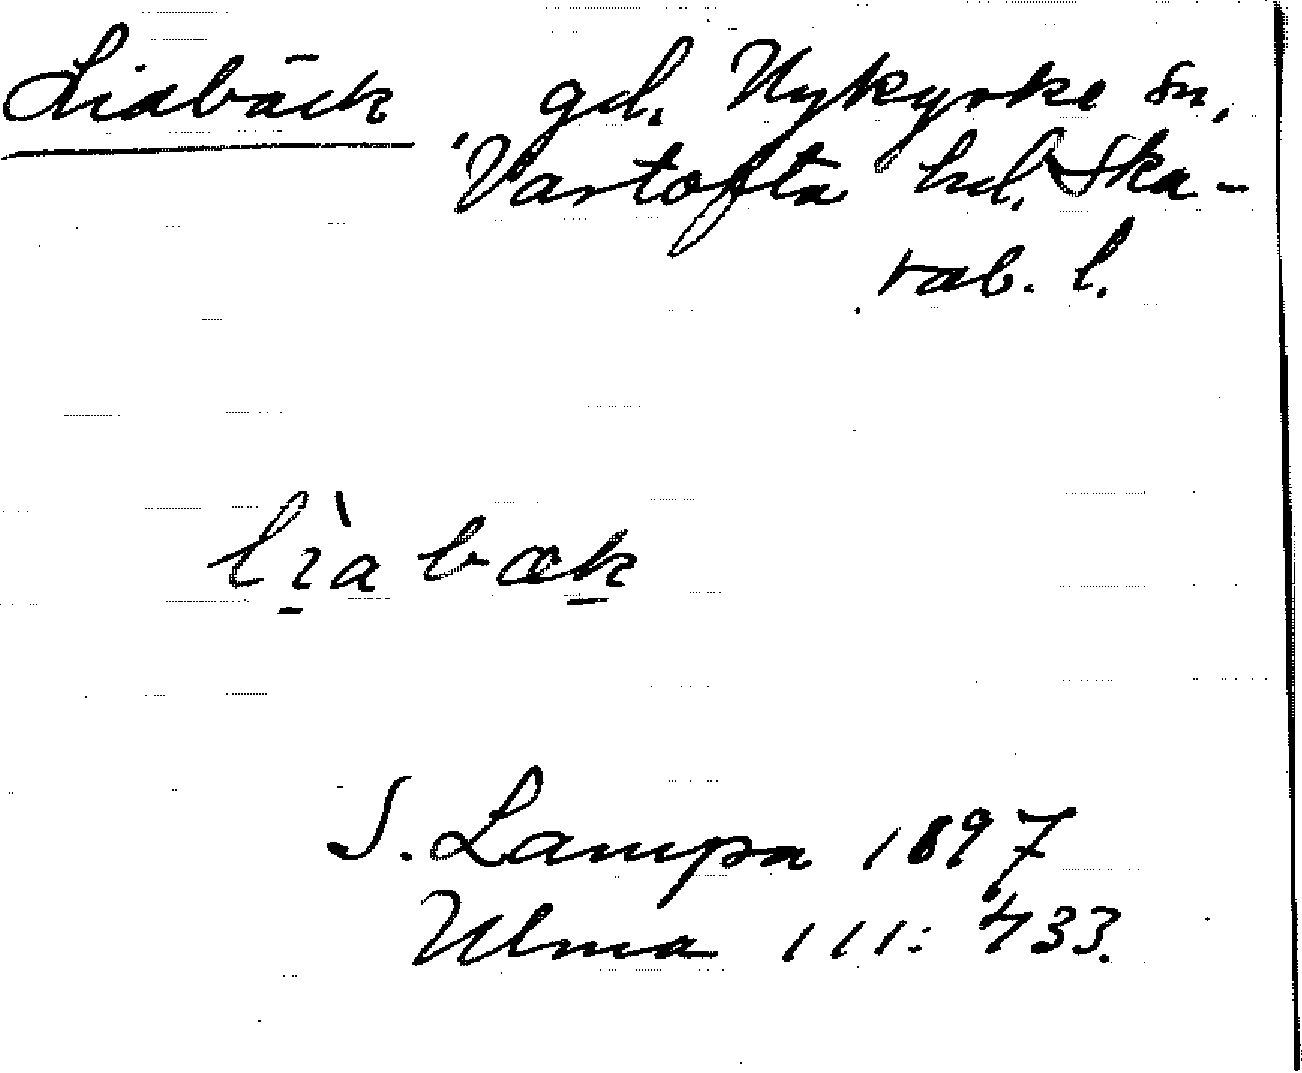 Liabäck gd. Nykyrke sn,
Vartofta hd. Ska-
rab. l.
lìabæk
S. Lampa 1897
Ulma 111: 433.